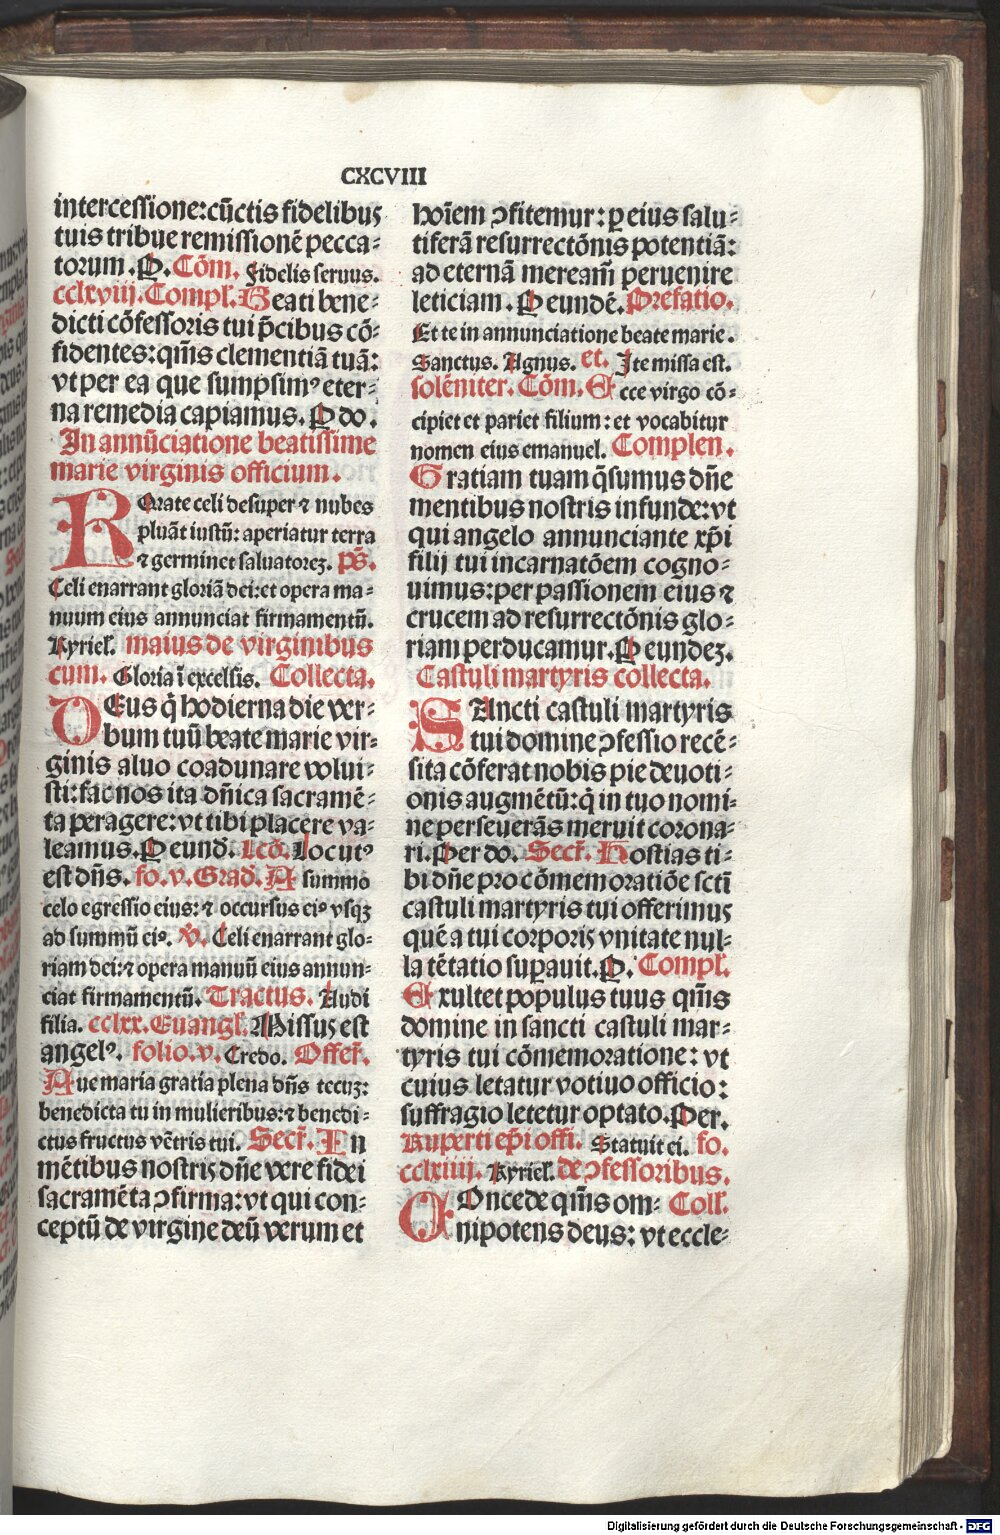 CXCVIII
intercessione:cūctis fidelibus
tuis tribue remissionē pecca⸗
torum.P. Cōm. Fidelis seruus.
cclxviij. Compl'. Beati bene⸗
dicti cōfessoris tui p̄cibus cō⸗
fidentes:qm̄s clementiā tuā:
vt per ea que sumpsimꝰ eter⸗
na remedia capiamus. P do.
In annūciatione beatissime
marie virginis officium.
ROrate celi desuper ⁊ nubes
pluāt iustū: aperiatur terra
⁊ germinet saluatorez. ps̄.
Celi enarrant gloriā dei:et opera ma⸗
nuum eius annunciat firmamentū.
Kyriel'. maius de virginibus
cum. Gloria ī excelsis. Collecta.
DEus q̄ hodierna die ver⸗
bum tuū beate marie vir⸗
ginis aluo coadunare volui⸗
sti:fac nos ita dn̄ica sacramē⸗
ta peragere:vt tibi placere va⸗
leamus.P eund̄. Lec̄. Locutꝰ
est dn̄s. fo.v. Grad. A summo
celo egressio eius:⁊ occursus eiꝰ vsqꝫ
ad summū eiꝰ. V̄. Celi enarrant glo⸗
riam dei:⁊ opera manuū eius annun⸗
ciat firmamentū. Tractus. Audi
filia. cclxx. Euangl'. Missus est
angelꝰ. folio.v. Credo. Offer̄.
Aue maria gratia plena dn̄s tecuꝫ:
benedicta tu in mulieribus:⁊ benedi⸗
ctus fructus vētris tui. Secr̄. In
mētibus nostris dn̄e vere fidei
sacramēta ꝯfirma:vt qui con⸗
ceptū de virgine deū verum et
hoīem ꝯfitemur: ꝑ eius salu⸗
tiferā resurrectōnis potentiā:
ad eternā meream̄ peruenire
leticiam. P eundē. Prefatio.
Et te in annunciatione beate marie.
Sanctus. Agnus. et. Ite missa est.
solēniter. Cōm. Ecce virgo cō⸗
cipiet et pariet filium: et vocabitur
nomen eius emanuel. Complen.
Gratiam tuam q̄sumus dn̄e
mentibus nostris infunde:vt
qui angelo annunciante xp̄i
filij tui incarnatōem cogno⸗
uimus:per passionem eius ⁊
crucem ad resurrectōnis glo⸗
riam perducamur.P eundez.
Castuli martyris collecta.
SAncti castuli martyris
tui domine ꝯfessio recē⸗
sita cōferat nobis pie deuoti⸗
onis augmētū:q̄ in tuo nomi⸗
ne perseuerās meruit corona⸗
ri. Per do. Secr̄. Hostias ti⸗
bi dn̄e pro cōmemoratiōe sctī
castuli martyris tui offerimus
quē a tui corporis vnitate nul⸗
la tētatio suꝑauit.P. Compl'.
Exultet populus tuus qm̄s
domine in sancti castuli mar⸗
tyris tui cōmemoratione: vt
cuius letatur votiuo officio:
suffragio letetur optato.Per.
Ruperti ep̄i offi. Statuit ei. fo.
cclxiiij. Kyriel'. de ꝯfessoribus.
COncede qm̄s om⸗ Coll'.
nipotens deus: vt eccle⸗
Digitalisierung gefördert durch die Deutsche Forschungsgemeinschaft - DFG